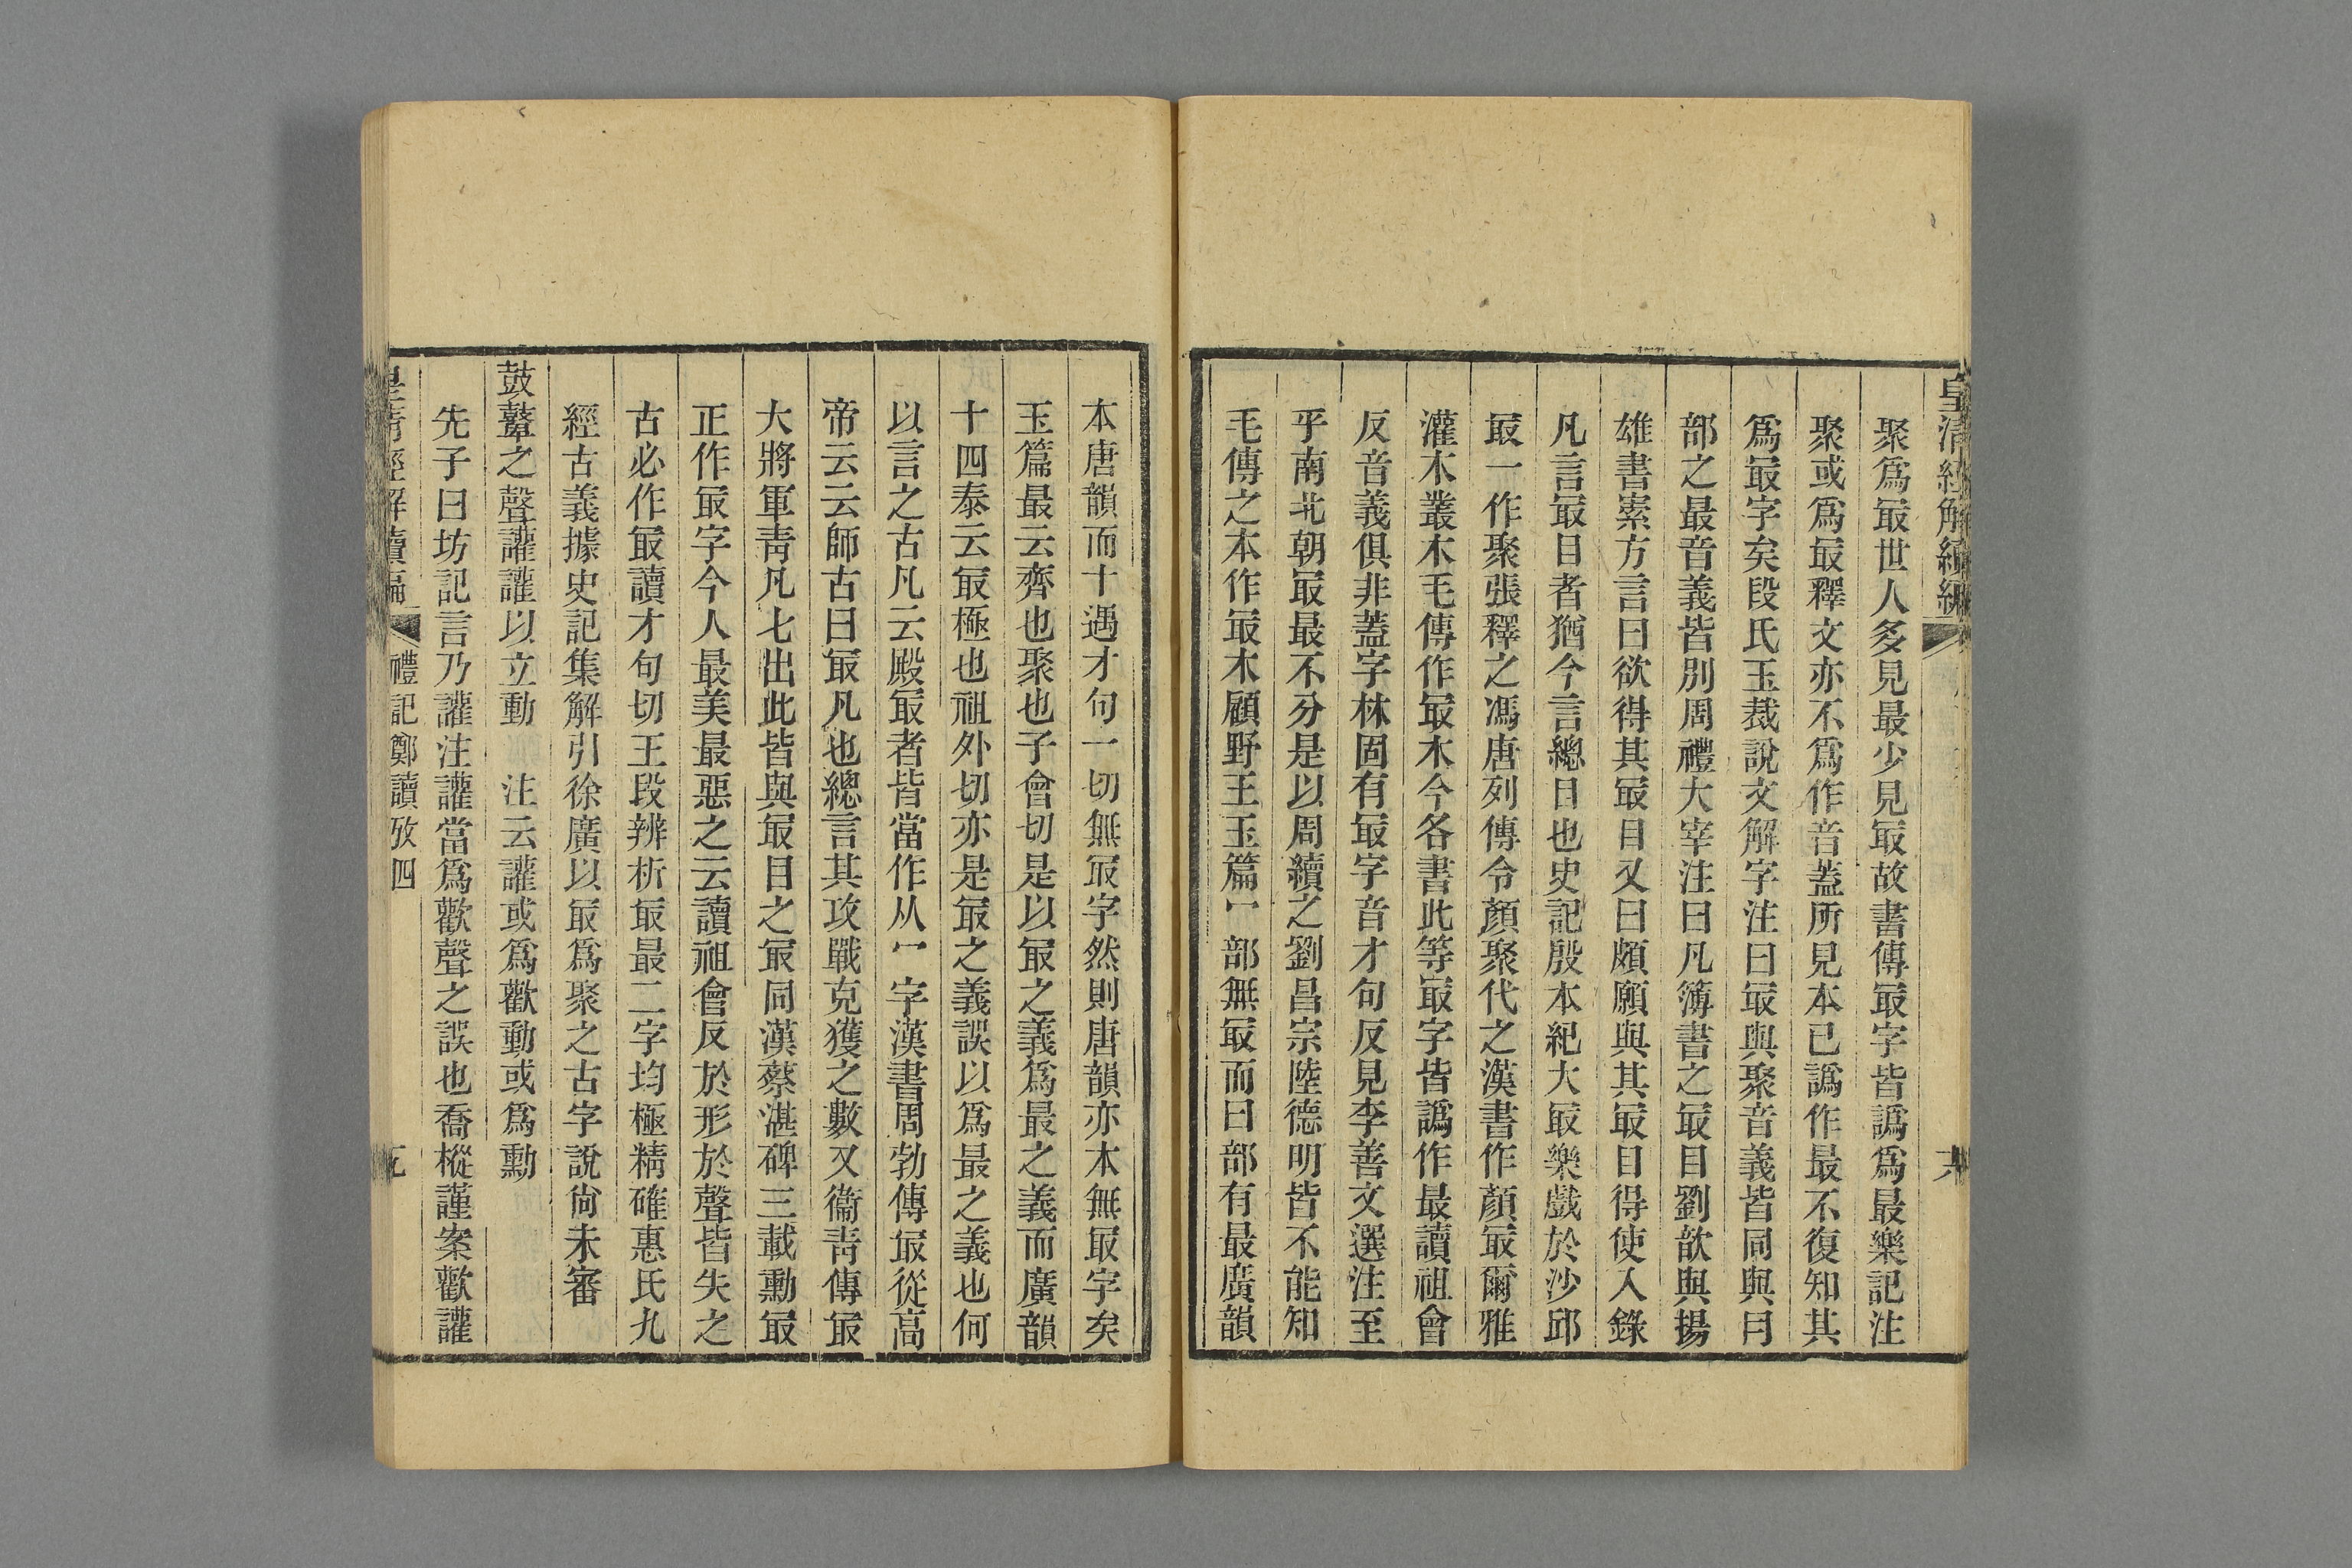 皇清經解續編
聚爲冣世人多見最少見冣故書傳冣字皆譌爲最樂記注
聚或爲冣釋文亦不爲作音蓋所見本已譌作最不復知其
爲冣字矣段氏玉裁說文解字注曰冣與聚音義皆同與冃
部之最音義皆別周禮大宰注曰凡簿書之冣目劉歆與揚
雄書索方言曰欲得其冣目又曰頗願與其冣目得使入錄
凡言冣目者猶今言總目也史記殷本紀大冣樂戲於沙邱
冣一作聚張釋之馮唐列傳令顏聚代之漢書作顏冣爾雅
灌木叢木毛傳作冣木今各書此等冣字皆譌作最讀祖會
反音義俱非蓋字林固有冣字音才句反見李善文選注至
乎南北朝冣最不分是以周續之劉昌宗陸德明皆不能知
毛傳之本作冣木顧野王玉篇冖部無冣而曰部有最廣韻
本唐韻而十遇才句一切無冣字然則唐韻亦本無冣字矣
玉篇最云齊也聚也子會切是以冣之義爲最之義而廣韻
十四泰云冣極也祖外切亦是冣之義誤以爲最之義也何
以言之古凡云殿冣者皆當作从冖字漢書周勃傳冣從高
帝云云師古曰冣凡也總言其攻戰克獲之數又衞靑傳冣
大將軍靑凡七出此皆與冣目之冣同漢蔡湛碑三載勳冣
正作冣字今人最美最惡之云讀祖會反於形於聲皆失之
古必作冣讀才句切王段辨析冣最二字均極精確惠氏九
經古義據史記集解引徐廣以冣爲聚之古字說尙未審
鼓鼙之聲讙讙以立動　注云讙或爲歡動或爲勳
先子曰坊記言乃讙注讙當爲歡聲之誤也喬樅謹案歡讙
禮記鄭讀攷四